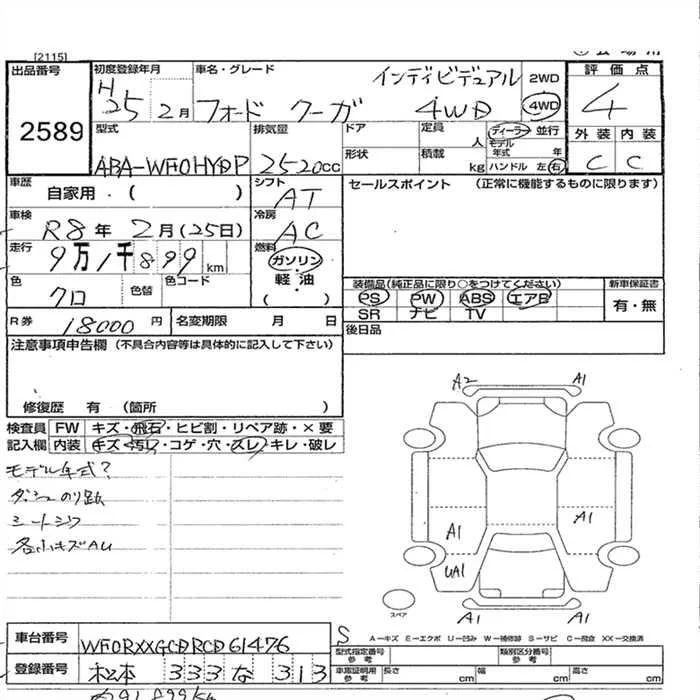 [2115]
出品番号
2589
初度登録年月
H25 2月
車名・グレード
インディビデュアル
フォード クーガ 4WD
2WD
4WD
評価点
4
外装 内装
C C
型式
ABA-WF0HYDP
排気量
2520cc
ドア
形状
定員 人
積載 kg
ディーラー 並行
モデル年式 年
ハンドル 左 右
車歴
自家用・( )
シフト
AT
セールスポイント (正常に機能するものに限ります)
車検
R8年 2月(25日)
冷房
AC
走行
9万1千899km
燃料
ガソリン
・
軽油
( )
色
クロ
色替
色コード
装備品(純正品に限り○をつけてください)
PS PW ABS エアB
SR ナビ TV
新車保証書
有・無
R券 18000円
名変期限 月 日
後日品
注意事項申告欄 (不具合内容等は具体的に記入して下さい)
修復歴 有 (箇所 )
検査員 FW キズ・飛石・ヒビ割・リペア跡・×要
記入欄 内装 キズ・汚れ・コゲ・穴・スレ・キレ・破レ
モデル年式?
ダッシュのり跡
シートシワ
各小キズAU
A2 A1
A1 A1
UA1
A1 A1
スペア
車台番号
WF0RXXGCDRCD61476
登録番号
松本 333 な 313
S
A−キズ E−エクボ U−凹み W−補修跡 S−サビ C−腐食 XX−交換済
型式指定番号 参考
類別区分番号 参考
車庫証明用 参考
長さ cm 幅 cm 高さ cm